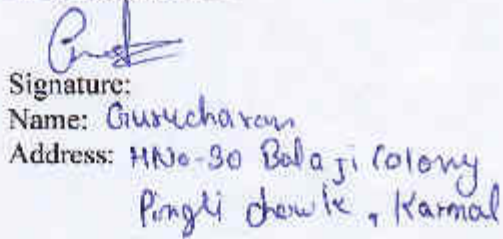 Signature:
Name: Gurucharan
Address: HNo-30 Balaji Colony
Pingli chowk, Karnal